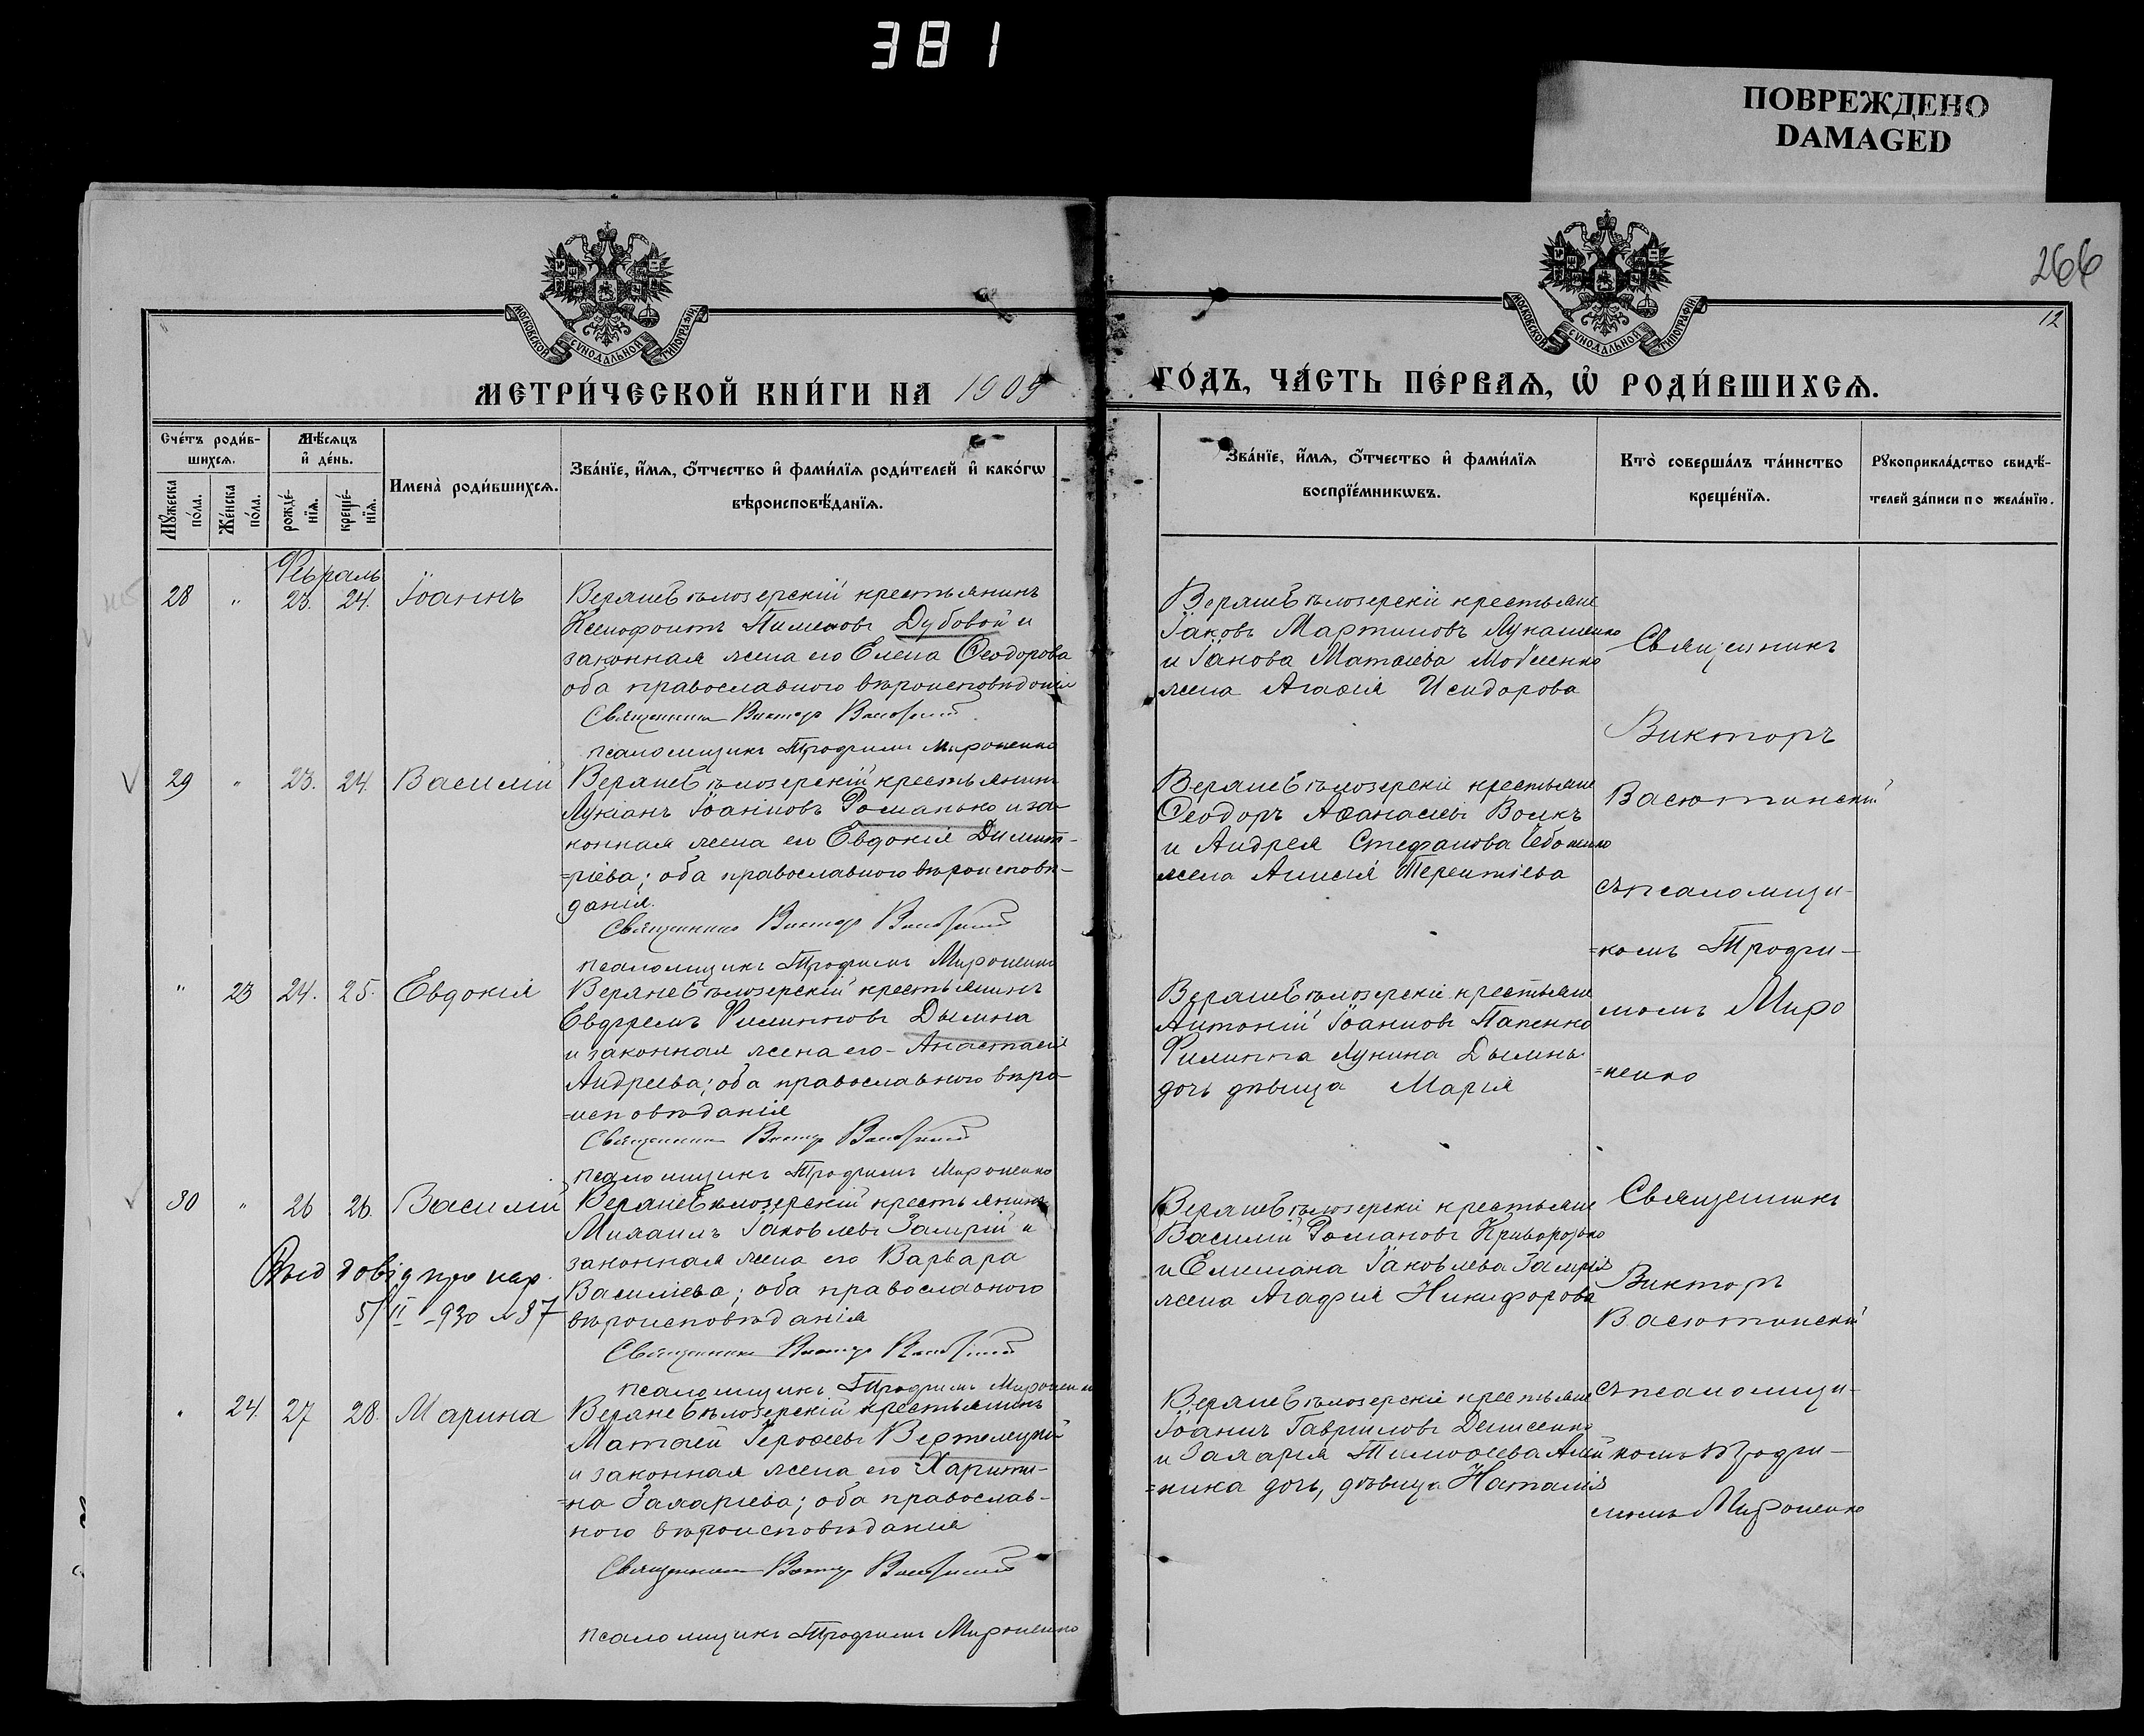 381
ПОВРЕЖДЕНО
DAMAGED
266
12
МОСКОВСКОЙ СУНОДАЛЬНОЙ ТИПОГРАФІИ
МОСКОВСКОЙ СУНОДАЛЬНОЙ ТИПОГРАФІИ
МЕТРИ́ЧЕСКОЙ КНИ́ГИ НА 1909
ГО́ДЪ, ЧА́СТЬ ПЕ́РВАѦ, Ѡ҆ РОДИ́ВШИХСѦ.
Сче́тъ роди́в-
шихсѧ.
Мѣ́сѧцъ
и҆ де́нь.
Мꙋ́жеска
по́ла.
Же́нска
по́ла.
рожде́-
нїѧ.
креще́-
нїѧ.
Имена̀ роди́вшихсѧ.
Зва́нїе, и҆́мѧ, ѻ҆́тчество и҆ фами́лїѧ роди́телей и҆ како́гѡ
вѣроисповѣ́данїѧ.
Зва́нїе, и҆́мѧ, ѻ҆́тчество и҆ фами́лїѧ
воспрїе́мникѡвъ.
Кто̀ соверша́лъ та́инство
креще́нїѧ.
Рꙋкоприкла́дство свидѣ́-
телей за́писи по жела́нїю.
Февраль
28 " 23. 24. Іоаннъ
Верхнебѣлозерскій крестьянинъ
Ксенофонтъ Пименовъ Дубовой и
законная жена его Елена Ѳеодорова
оба православного вѣроисповѣданія
Священникъ Викторъ Васютинскій
псаломщикъ Трофимъ Мироненко
Верхнебѣлозерскіе крестьяне
Іаковъ Мартиновъ Лукашенко
и Іакова Матѳіева
жена Агаѳія Исидорова
29 " 23. 24. Василій
Верхнебѣлозерскій крестьянинъ
Лукіанъ Іоанновъ Романько и за-
конная жена его Евдокія Димит-
=ріева; оба православного вѣроисповѣ-
данія.
Священникъ Викторъ Васютинскій
псаломщикъ Трофимъ Мироненко
Верхнебѣлозерскіе крестьяне
Ѳеодоръ Аѳанасіевъ Волкъ
и Андрея Стефанова
жена Анисія Терентіева
" 23 24. 25. Евдокія
Верхнебѣлозерскій крестьянинъ
Евфремъ Филипповъ Дымна
и законная жена его- Анастасія
Андреева; оба православного вѣро-
=исповѣданія
Священникъ Викторъ Васютинскій
псаломщикъ Трофимъ Мироненко
Верхнебѣлозерскіе крестьяне
Антоній Іоанновъ Папенко
Филиппа Лукина Дымны
дочь дѣвица Марія
Священникъ
Викторъ
Васютинскій
съ псаломщи-
=комъ Трофи-
момъ Миро
=ненко
30 " 26 26. Василій
Верхнебѣлозерскій крестьянинъ
Михаилъ Іаковлевъ Замрій и
законная жена его Варвара
Василіева; оба православного
вѣроисповѣданія
Священникъ Викторъ Васютинскій
псаломщикъ Трофимъ Мироненко
Вид довід про нар.
5/II -930 №37
Верхнебѣлозерскіе крестьяне
Василій Романовъ Криворотько
и Емиліана Іаковлева Замрія
жена Агафія Никифорова
" 24. 27 28. Марина
Верхнебѣлозерскій крестьянинъ
Матѳей Іероѳеевъ Вертелецкій
и законная жена его Харити-
=на Захаріева; оба православ-
ного вѣроисповѣданія
Священникъ Викторъ Васютинскій
псаломщикъ Трофимъ Мироненко
Верхнебѣлозерскіе крестьяне
Іоаннъ Гавриловъ Денисенко
и Захарія Тимоѳеева Алей
=ника дочь, дѣвица Наталія
Священникъ
Викторъ
Васютинскій
съ псаломщи-
комъ Трофи-
момъ Мироненко